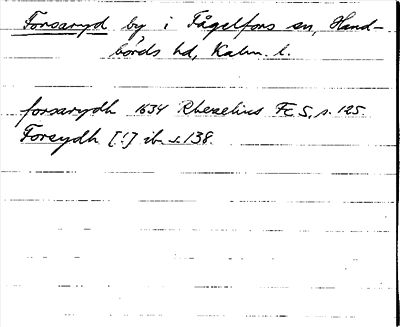 Forsaryd by i Fågelfors sn, Hand-
börds hd, Kalm. l.
forsarydh 1634 Rhezelius FCS, s. 125
Forsydh [!] ib. s. 138.